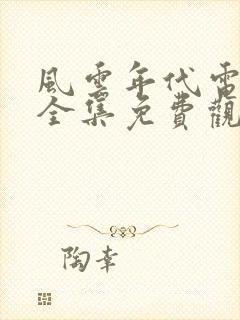 風雲年代電
全集免費觀
陶幸